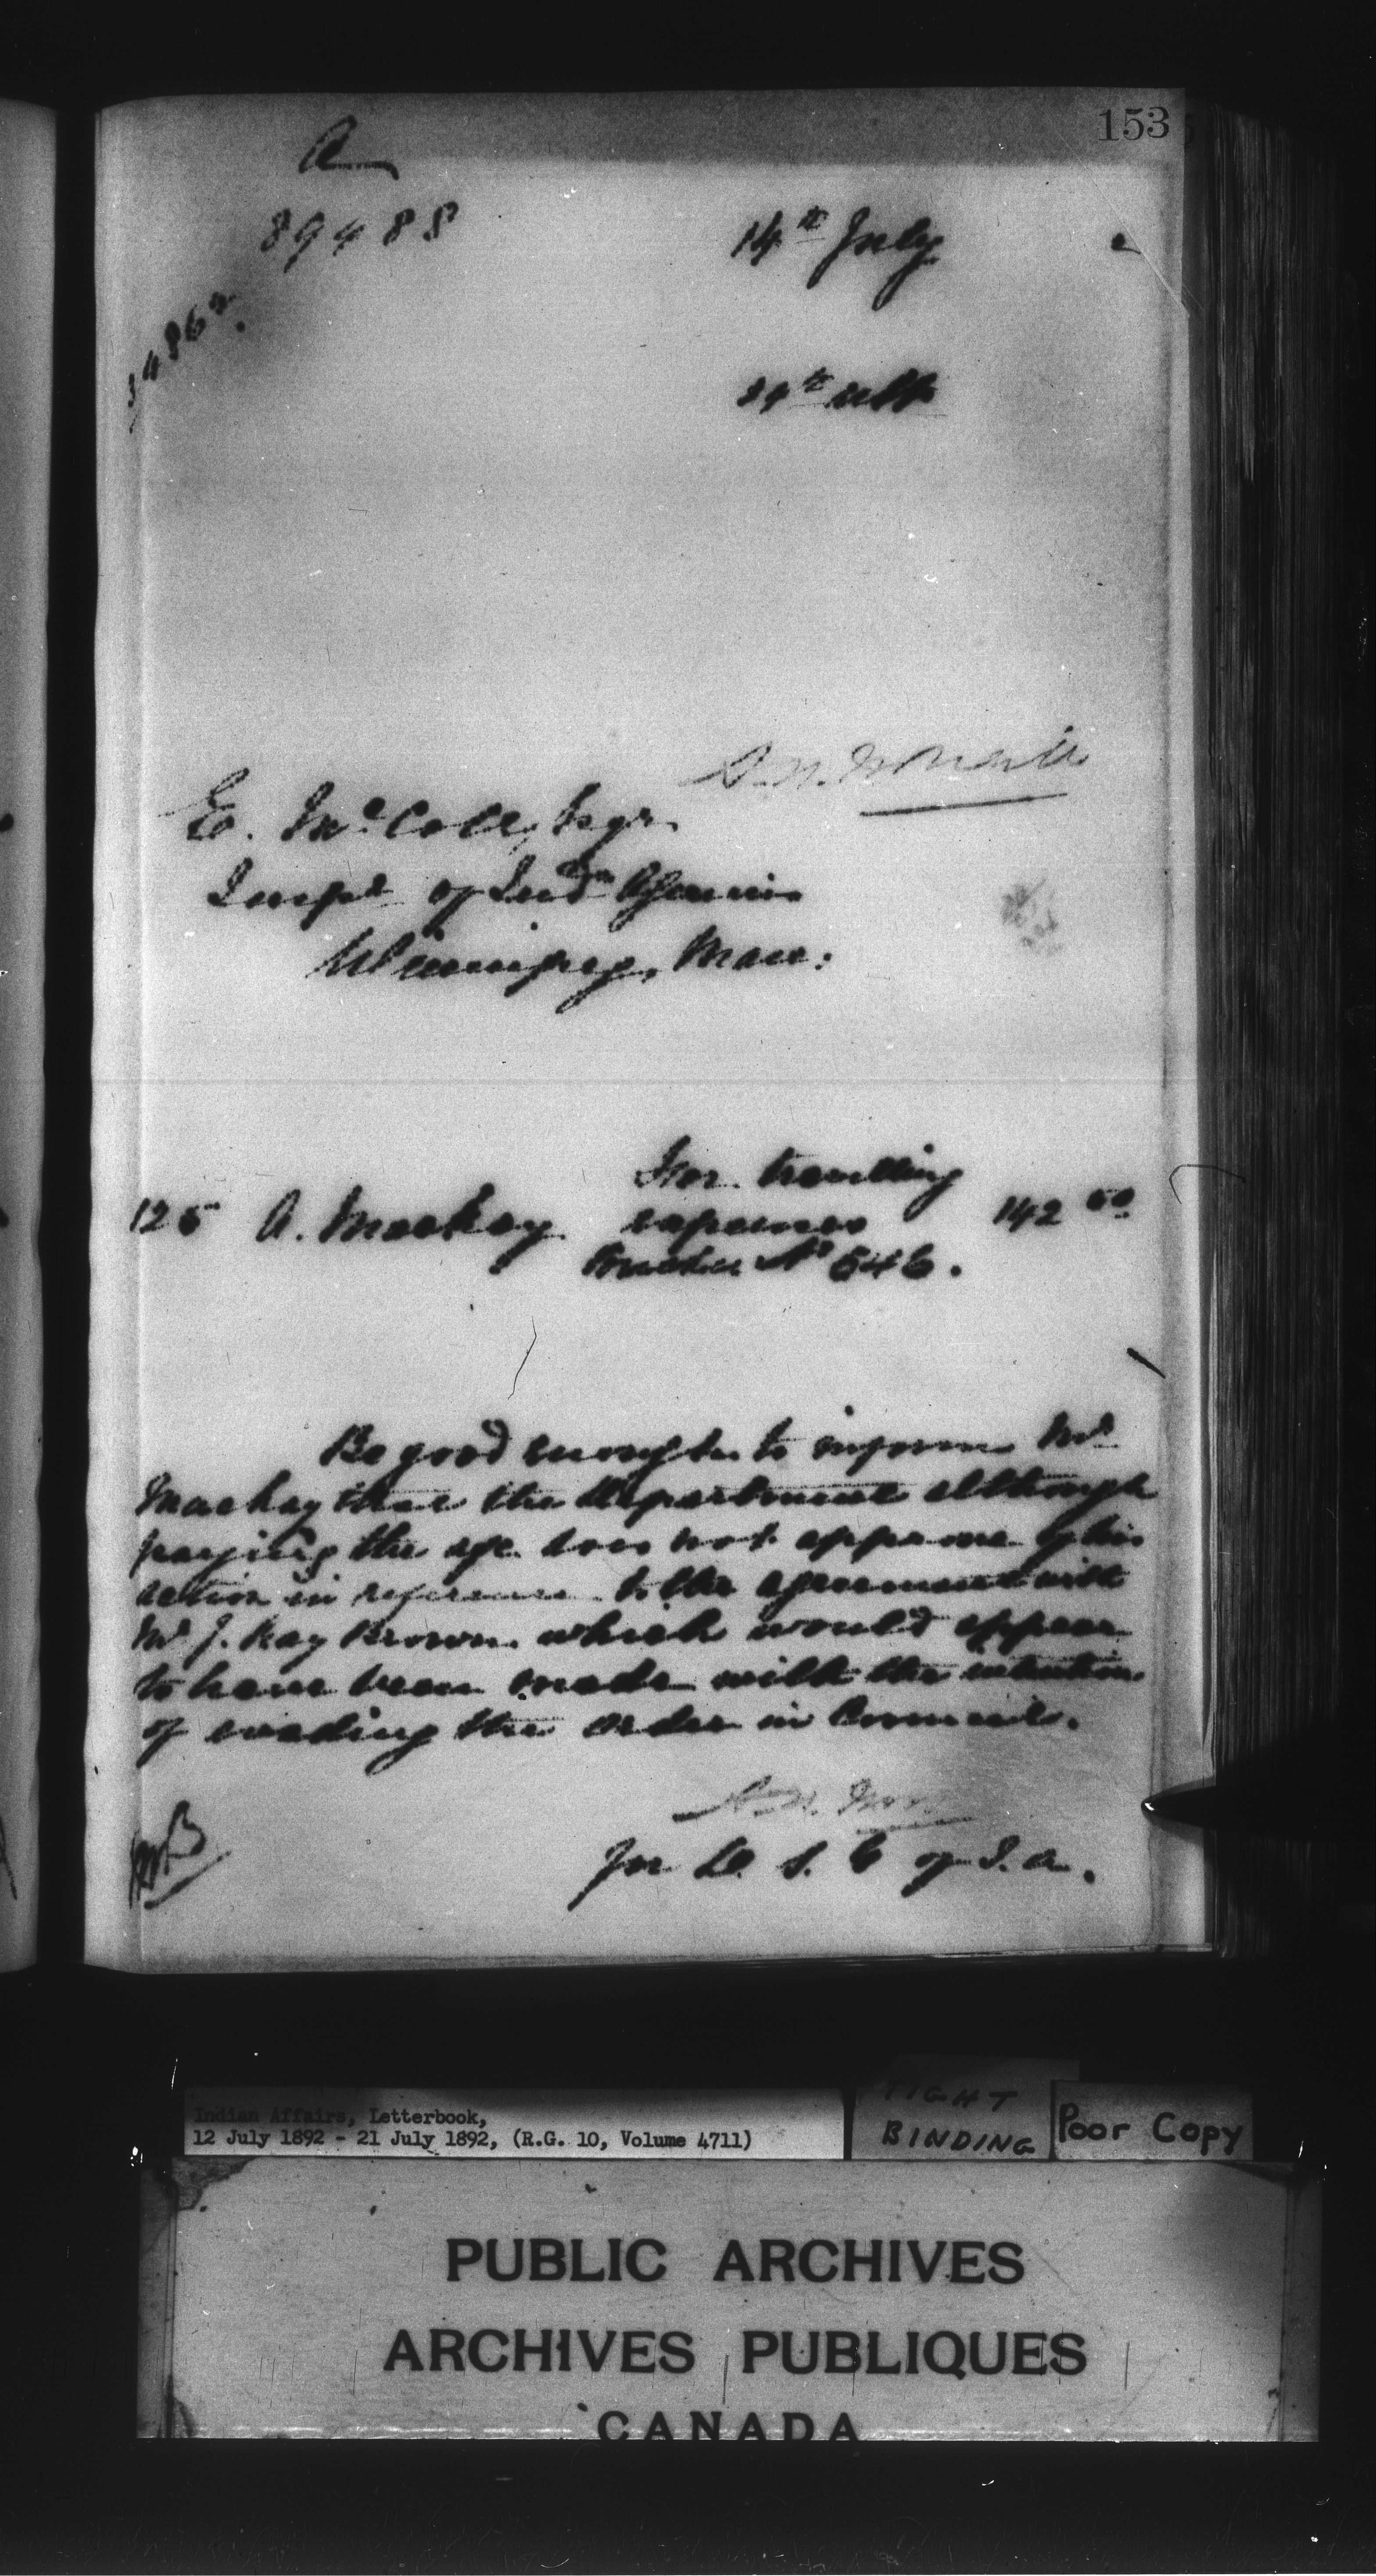 153
A
89488
14th July
29th ult
E. McColl, Esqr.
Inspr of Indn Agencies
Winnipeg, Man:
For travelling
125 A. Mackay expenses 142 50
Voucher No 546.
Be good enough to inform Mr
Mackay that the Department although
paying the a/c does not approve of his
action in reference to the agreement with
Mr J. Kay Brown which would appear
to have been made with the intention
of evading the Order in Council.
for D. S. G of I. A.
Indian Affairs, Letterbook,
12 July 1892 - 21 July 1892, (R.G. 10, Volume 4711)
TIGHT
BINDING
Poor Copy
PUBLIC ARCHIVES
ARCHIVES PUBLIQUES
CANADA